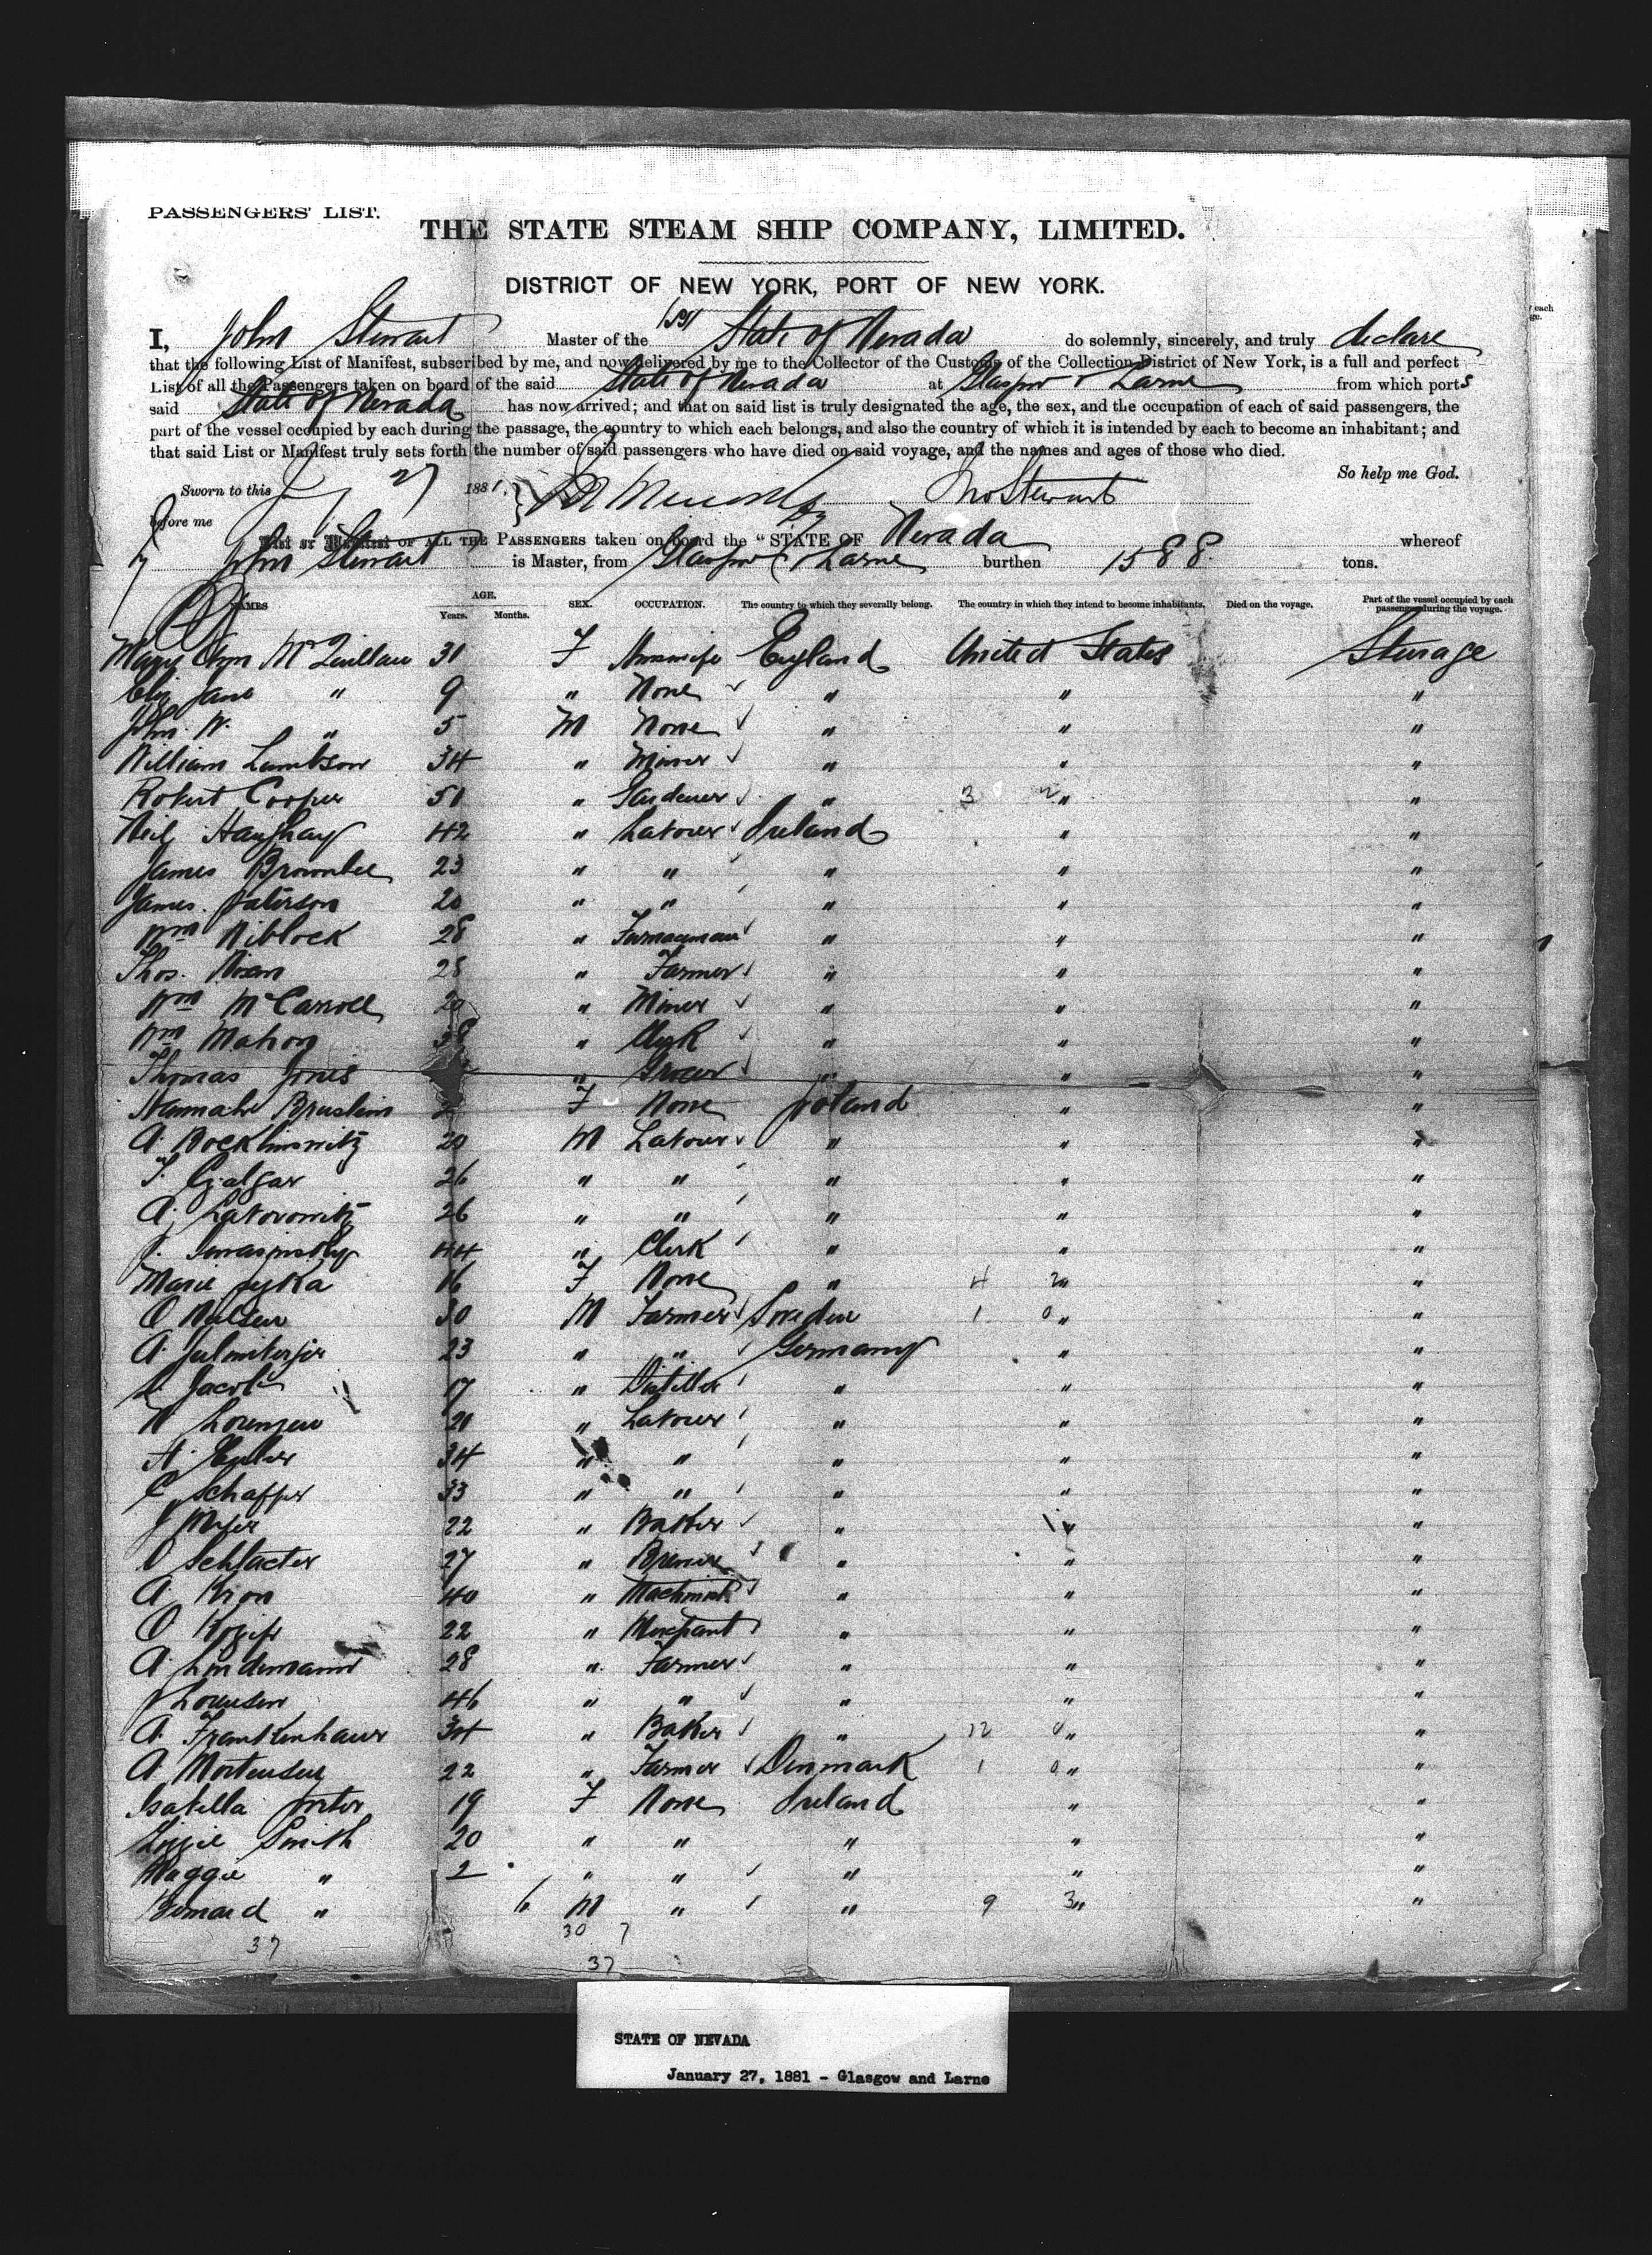 PASSENGERS' LIST.
THE STATE STEAM SHIP COMPANY, LIMITED.
DISTRICT OF NEW YORK, PORT OF NEW YORK.
I, John Stewart Master of the State of Nevada do solemnly, sincerely, and truly declare
that the following List of Manifest, subscribed by me, and now delivered by me to the Collector of the Customs of the Collection District of New York, is a full and perfect
List of all the Passengers taken on board of the said State of Nevada at Glasgow & Larne from which ports
said State of Nevada has now arrived; and that on said list is truly designated the age, the sex, and the occupation of each of said passengers, the
part of the vessel occupied by each during the passage, the country to which each belongs, and also the country of which it is intended by each to become an inhabitant; and
that said List or Manifest truly sets forth the number of said passengers who have died on said voyage, and the names and ages of those who died.
So help me God.
Sworn to this 27 1881. Jno Stewart
before me
List or Manifest OF ALL THE PASSENGERS taken on board the "STATE OF Nevada whereof
John Stewart is Master, from Glasgow & Larne burthen 1588 tons.
NAMES AGE. Years. Months. SEX. OCCUPATION. The country to which they severally belong. The country in which they intend to become inhabitants. Died on the voyage. Part of the vessel occupied by each passenger during the voyage.
Mary Ann McQuillan 31 F England United States Sterage
Eliz Jane " 9 " None " " "
John W. " 5 M None " " "
William Lambson 34 " Miner " " "
Robert Cooper 51 " Gardener " 3 2 " "
Neil Haughay 42 " Labourer Ireland " "
James Brownlee 23 " " " " "
James Paterson 20 " " " " "
Wm Niblock 28 " Furnaceman " " "
Thos. 28 " Farmer " " "
Wm McCarroll 20 " Miner " " "
Wm Mahon " Clerk " " "
Thomas Jones " Grocer " " "
Hannah Bruslein F None Poland " "
A. 20 M Labourer " " "
26 " " " " "
A. 26 " " " " "
44 " Clerk " " "
Marie 16 F None " 4 2 " "
O Nilsen 30 M Farmer Sweden 1 0 " "
A. 23 " " Germany " "
Jacobi 17 " Distiller " " "
Lorenzen 21 " Labourer " " "
34 " " " " "
C Schaffer 33 " " " " "
J Meyer 22 " Baker " " "
Schlacter 27 " Brewer " " "
A. Kion 40 " Machinist " " "
O 22 " Merchant " " "
A. Lindemann 28 " Farmer " " "
J Lorensen 46 " " " " "
A. Frankenhauser 34 " Baker " 12 0 " "
A. Mortensen 22 " Farmer Denmark 1 0 " "
Isabella Porter 19 F None Ireland " "
Lizzie Smith 20 " " " " "
Maggie " 2 " " " " "
Bernard " 6 M " " 9 3 " "
37 30 7
37
STATE OF NEVADA
January 27, 1881 - Glasgow and Larne